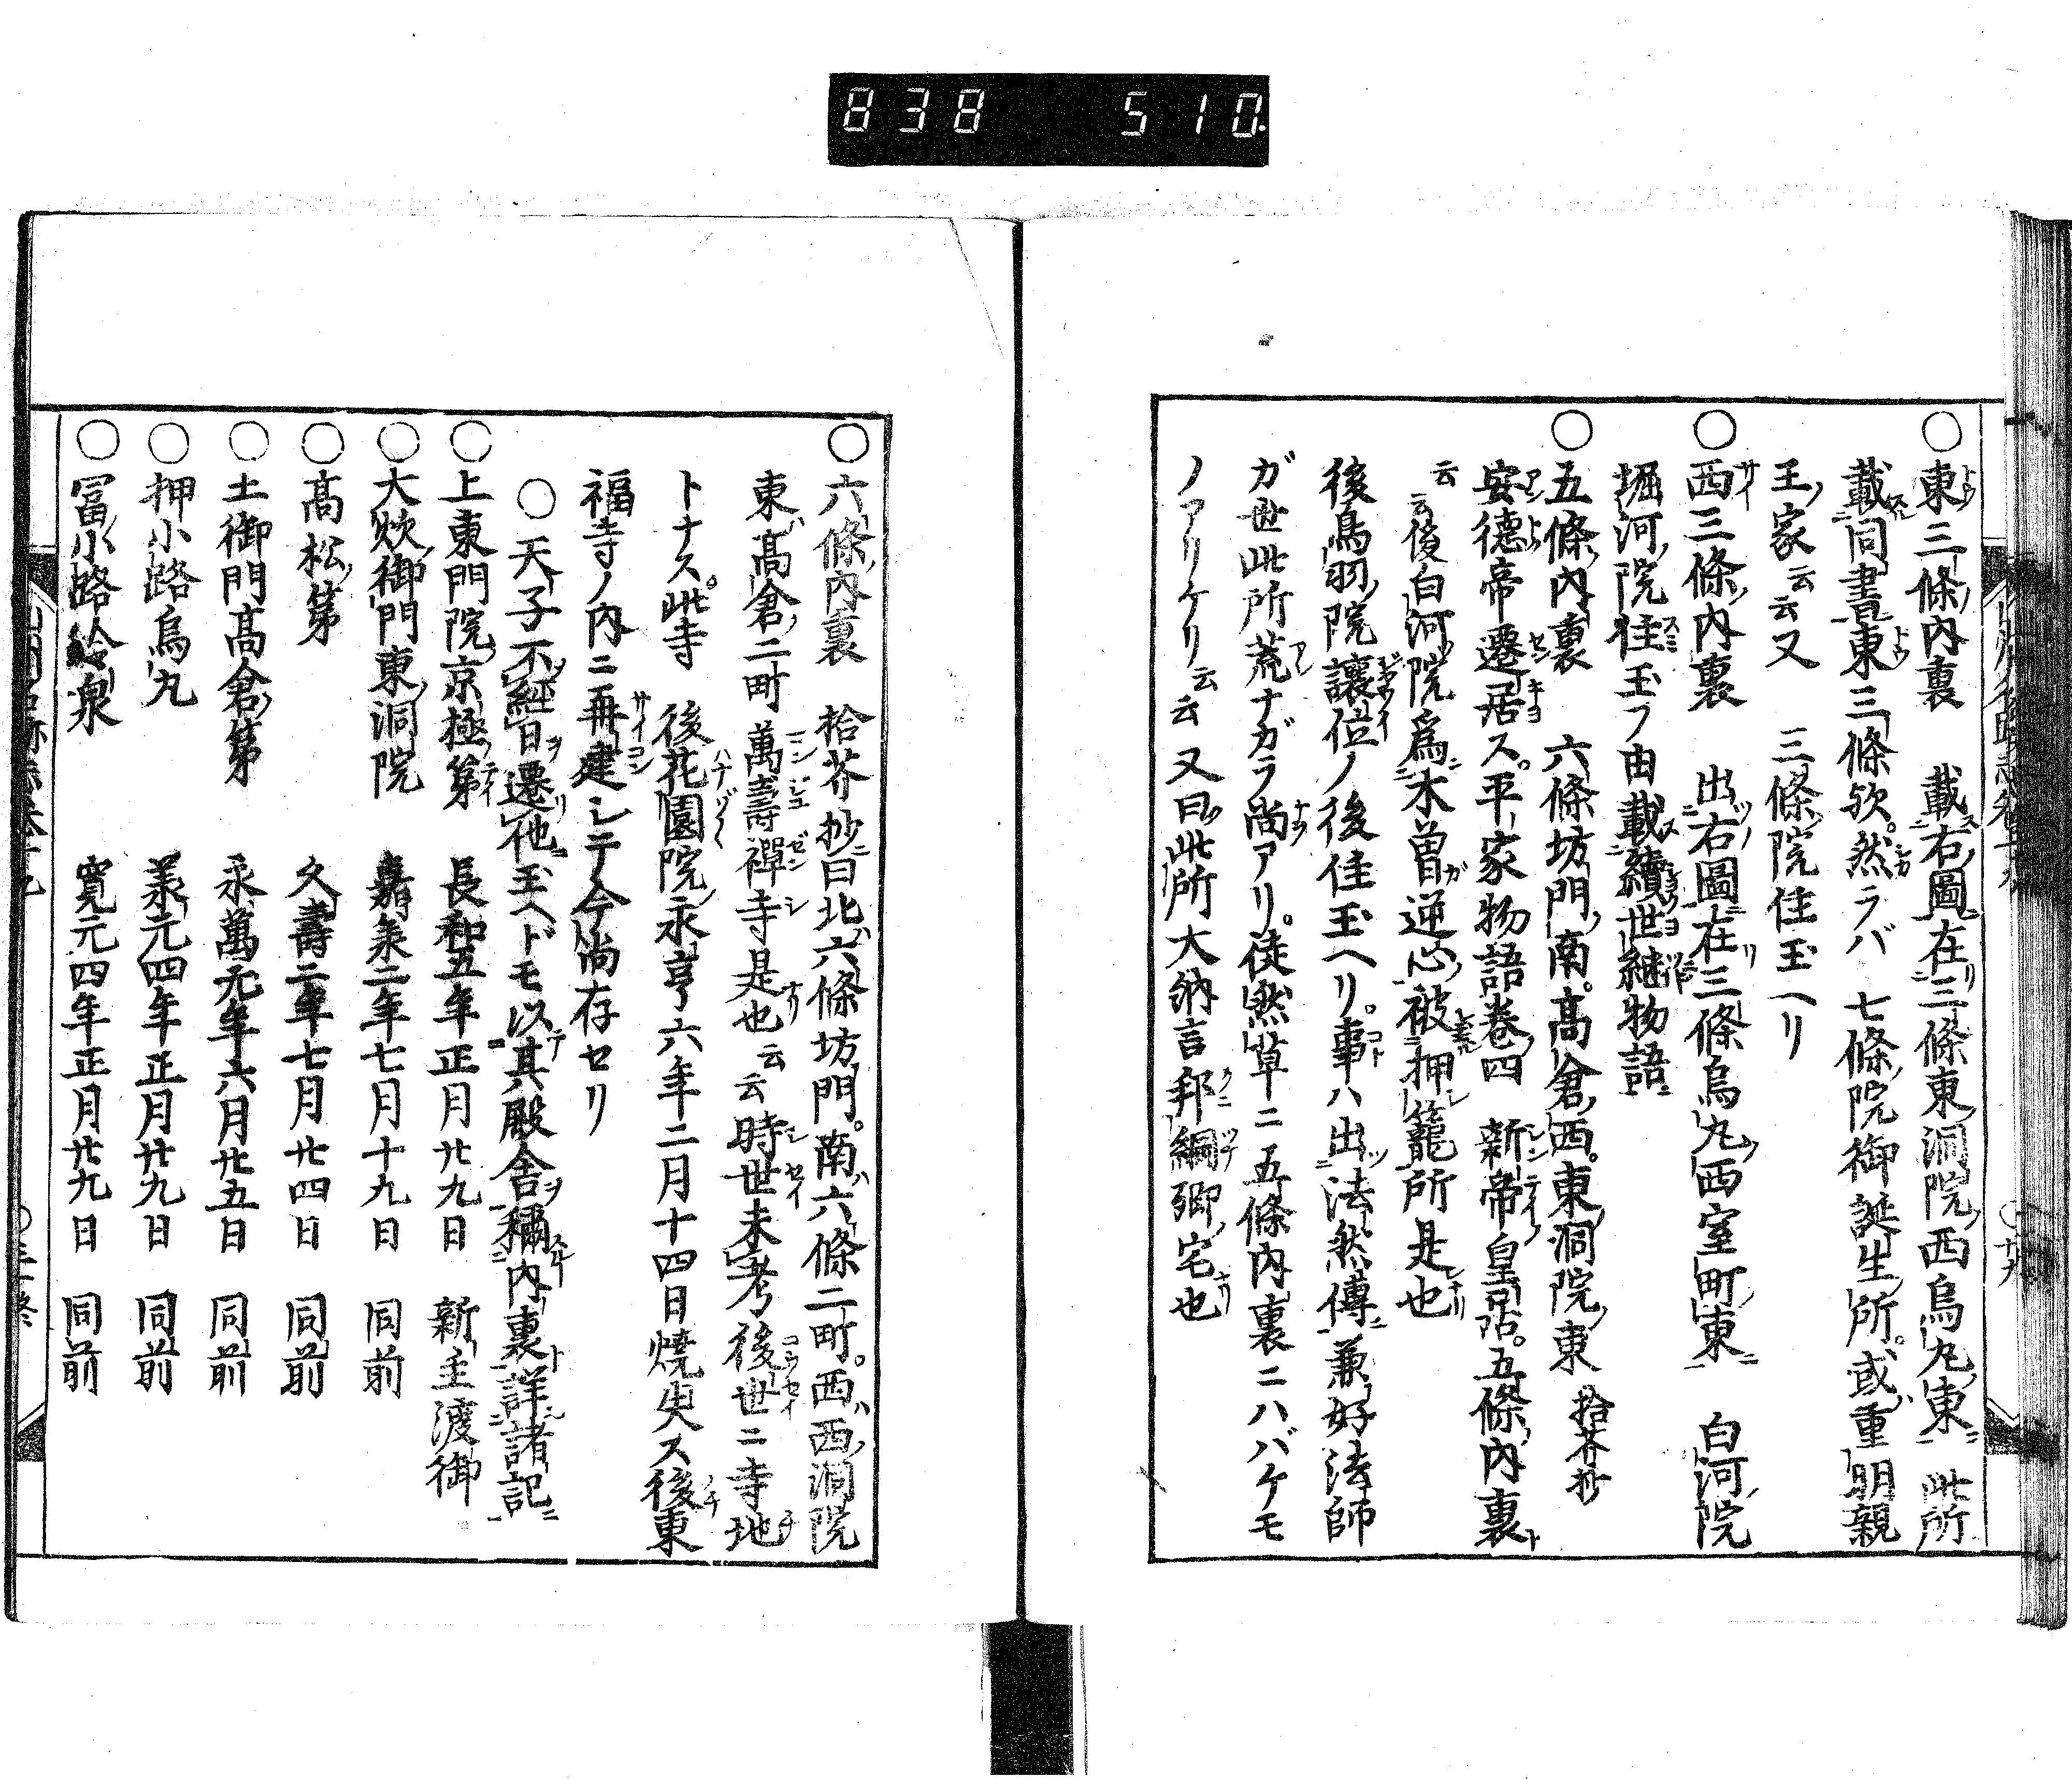 838 510
○東三條内裏 載右圖在三條東洞院西烏丸東 此所
載同書東三條欤。然ラバ 七條院御誕生所。或重明親
王家云云又 三條院住玉ヘリ
○西三條内裏 出右圖在三條烏丸西室町東 白河院
堀河院住玉フ由載續世継物語
○五條内裏 六條坊門南。高倉西。東洞院東 拾芥抄
安德帝遷居ス。平家物語巻四 新帝皇居。五條内裏ト
云云後白河院爲木曽逆心被押籠所是也
後鳥羽院讓位ノ後住玉ヘリ。事ハ出法然傳兼好法師
ガ世此所荒ナガラ尚アリ。徒然草ニ五條内裏ニハバケモ
ノアリケリ云云又曰此所大納言邦綱卿宅也
○六條内裏 拾芥抄曰北六條坊門。南六條二町。西西洞院
東高倉二町萬壽禪寺是也云云時世未考後世ニ寺地
トナス。此寺 後花園院永享六年二月十四日燒失ス後東
福寺ノ内ニ再建シテ今尚存セリ
○天子不經日遷他玉ヘドモ以其殿舎稱内裏詳諸記
○上東門院京極第 長和五年正月廿九日 新主渡御
○大炊御門東洞院 嘉承二年七月十九日 同前
○高松第 久壽二年七月廿四日 同前
○土御門高倉第 永萬元年六月廿五日 同前
○押小路烏丸 羕元四年正月廿九日 同前
○冨小路冷泉 寛元四年正月廿九日 同前